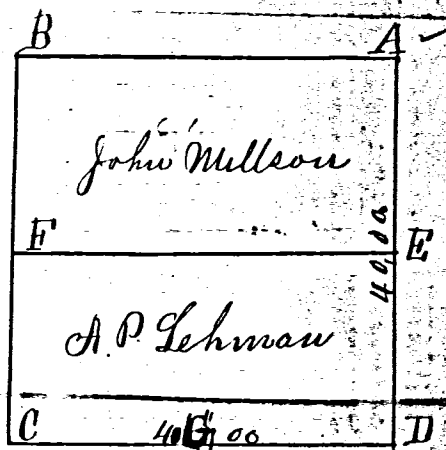 B A
John Millson
F E
40,00
A. P. Lehman
C 40 G 00 D